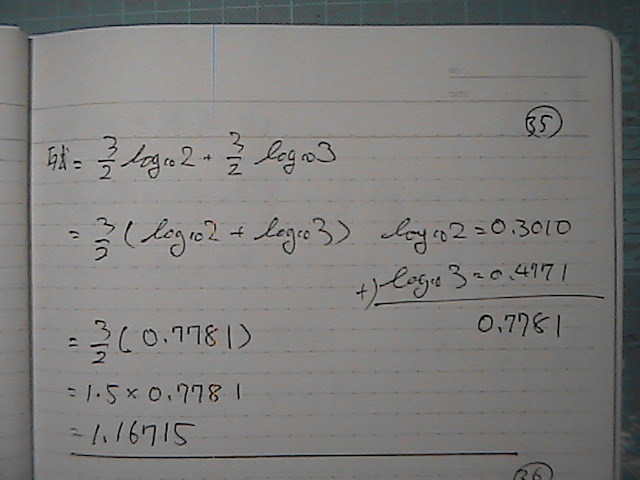 ㉟
与式 = 3/2 log₁₀2 + 3/2 log₁₀3
= 3/2 ( log₁₀2 + log₁₀3 ) log₁₀2 = 0.3010
+) log₁₀3 = 0.4771
0.7781
= 3/2 ( 0.7781 )
= 1.5 × 0.7781
= 1.16715
㊱